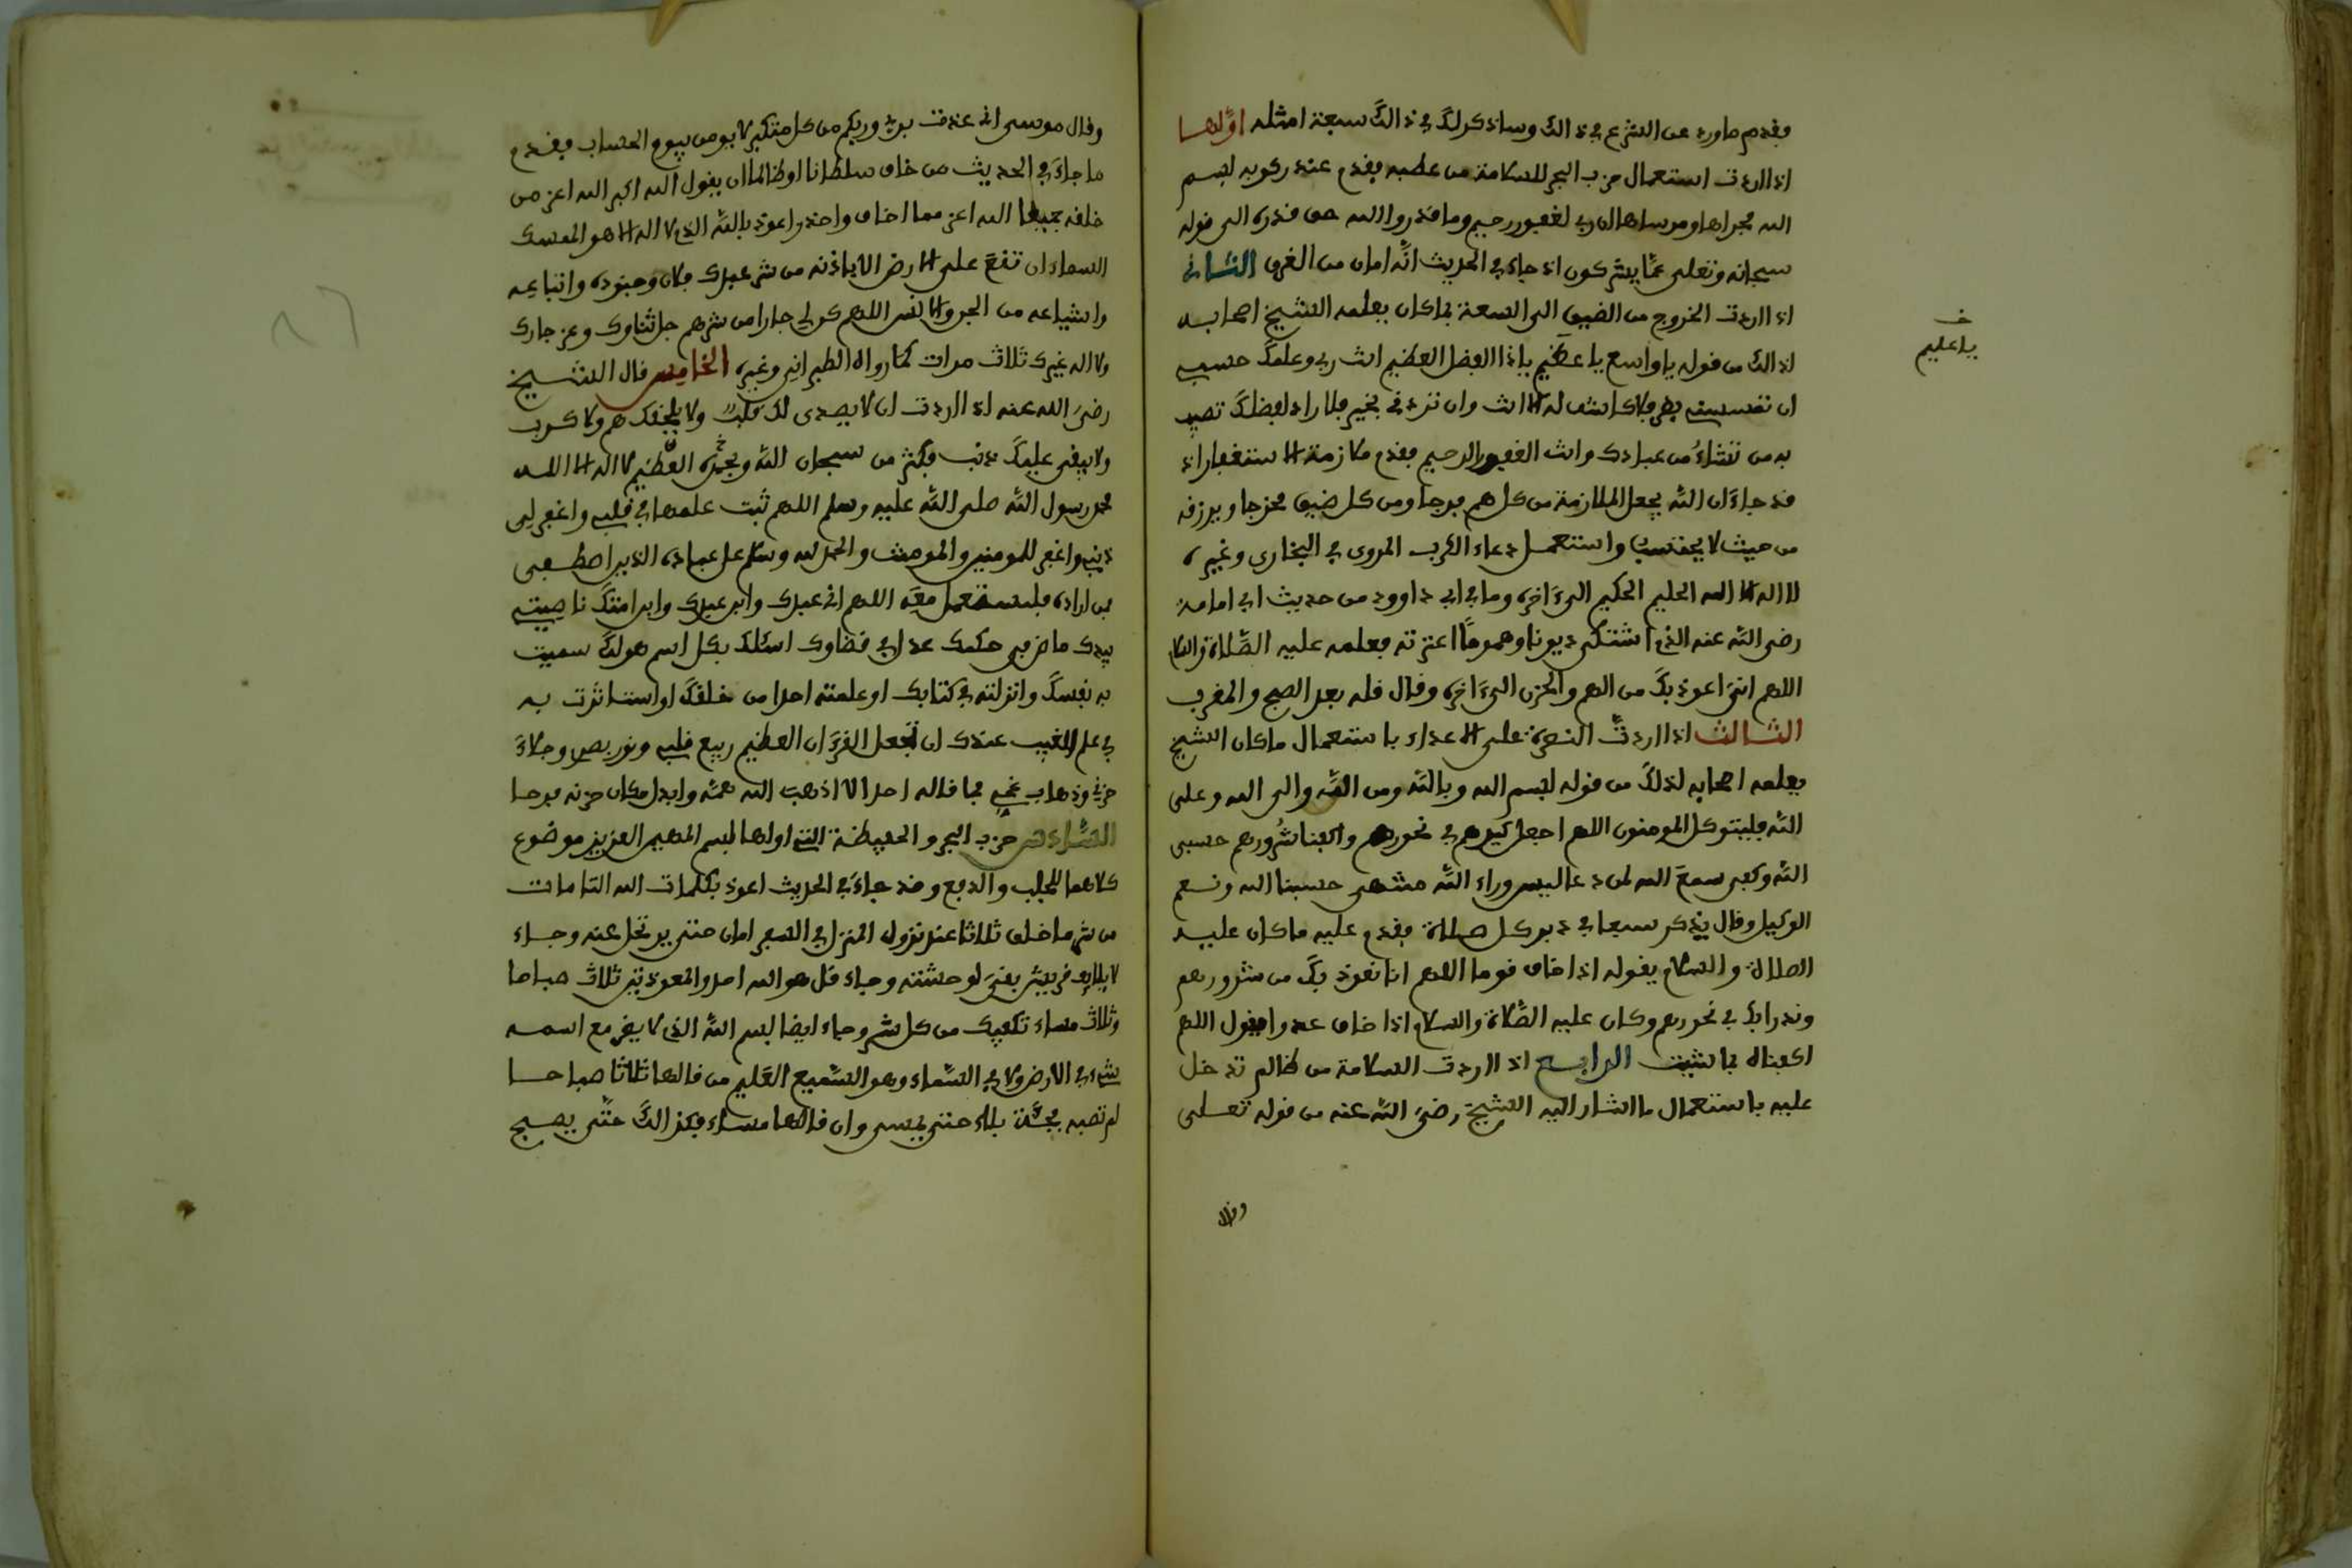 فقدم ما ورد عن الشرع في ذالك وساذكر لك في ذالك سبعة امثلة اولها
اذا اردت استعمال حزب البحر للسلامة من عطبه فقدم عند ركوبه بسم
الله مجراها ومرساها ان ربي لغفور رحيم وما قدروا الله حق قدره الى قوله
سبحانه وتعلى عما يشركون اذ جاء في الحديث انه امان من الغرق الثاني
اذا اردت الخروج من الضيق الى السعة فما كان يعلمه الشيخ اصحابه
لذالك من قوله يا واسع يا عظيم ياذا الفضل العظيم انت ربي وعلمك حسبي
ان تمسسني بضر فلا كاشف له الا انت وان تردني بخير فلا راد لفضلك تصيب
به من تشاء من عبادك وانت الغفور الرحيم فقدم ملازمة الاستغفار اذ
قد جاء ان الله يجعل لملازمه من كل هم فرجا ومن كل ضيق مخرجا ويرزقه
من حيث لا يحتسب واستعمل دعاء الكرب المروي في البخاري وغيره
لا اله الا الله الحليم الحكيم الى ءاخره وما في ابي داوود من حديث ابي امامة
رضي الله عنه الذي اشتكى ديونا وهموما اعترته فعلمه عليه الصلاة والسلام
اللهم اني اعوذ بك من الهم والحزن الى ءاخره وقال قله بعد الصبح والمغرب
الثالث اذا اردت النصرة على الاعداء باستعمال ما كان الشيخ
يعلمه اصحابه لذلك من قوله بسم الله وبالله ومن الله والى الله وعلى
الله فليتوكل المومنون اللهم اجعل كيدهم في نحورهم واكفنا شرورهم حسبي
الله وكفى سمع الله لمن دعا ليس وراء الله منتهى حسبنا الله ونعم
الوكيل وقال يذكر سبعا في دبر كل صلاة فقدم عليه ما كان عليه
الصلاة والسلام يقوله اذا خاف قوما اللهم انا نعوذ بك من شرورهم
وندرا بك في نحورهم وكان عليه الصلاة والسلام اذا خاف عدوا يقول اللهم
اكفناه بما شئت الرابع اذا اردت السلامة من ظالم تدخل
عليه باستعمال ما اشار اليه الشيخ رضي الله عنه من قوله تعلى
وقال
خ
يا عليم
وقال موسى اني عذت بربي وربكم من كل متكبر لا يومن بيوم الحساب فقدم
ما جاء في الحديث من خاف سلطانا او ظالما ان يقول الله اكبر الله اعز من
خلقه جميعا الله اعز مما اخاف واحذر اعوذ بالله الذي لا اله الا هو الممسك
السماء ان تقع على الارض الا باذنه من شر عبدك فلان وجنوده واتباعه
واشياعه من الجن والانس اللهم كن لي جارا من شرهم جل ثناوك وعز جارك
ولا اله غيرك ثلاث مرات كما رواه الطبراني وغيره الخامس قال الشيخ
رضي الله عنه اذا اردت ان لا يصدى لك قلب ولا يلحقك هم ولا كرب
ولا يبقى عليك ذنب فاكثر من سبحان الله وبحمده العظيم لا اله الا الله
محمد رسول الله صلى الله عليه وسلم اللهم ثبت علمها في قلبي واغفر لي
ذنبي واغفر للمومنين والمومنت والحمد لله وسلام على عباده الذين اصطفى
من اراده فليستعمل معه اللهم اني عبدك وابن عبدك وابن امتك ناصيتي
بيدك ماض في حكمك عدل في قضاوك اسئلك بكل اسم هو لك سميت
به نفسك وانزلته في كتابك او علمته احدا من خلقك او استاثرت به
في علم الغيب عندك ان تجعل القرءان العظيم ربيع قلبي ونور بصري وجلاء
حزني وذهاب غمي فما قاله احد الا اذهب الله همه وابدل مكان حزنه فرحا
السادس حزب البحر والحفيظة التي اولها بسم المهيمن العزيز موضوع
كلاهما للجلب والدفع وقد جاء في الحديث اعوذ بكلمات الله التامات
من شر ما خلق ثلاثا عند نزول المنزل في السفر امان حتى يرتحل عنه وجاء
لايلاف قريش يقرى لوحشته وجاء قل هو الله احد والمعوذتين ثلاث صباحا
وثلاث مساء تكفيك من كل شر وجاء ايضا بسم الله الذي لا يضر مع اسمه
شيء في الارض ولا في السماء وهو السميع العليم من قالها ثلاثا صباحا
لم تصبه فجئة بلاء حتى يمسي وان قالها مساء فكذالك حتى يصبح